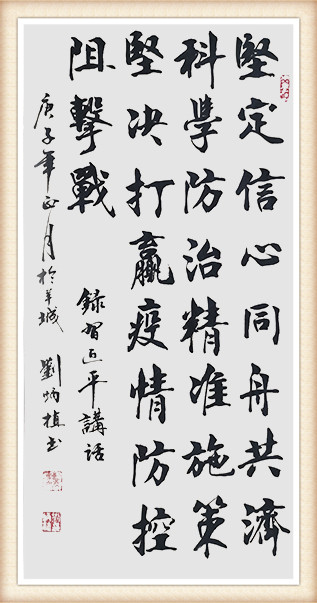 堅定信心同舟共濟
科學防治精准施策
堅決打贏疫情防控
阻擊戰
録習近平講話
庚子年正月於羊城 劉炳植书